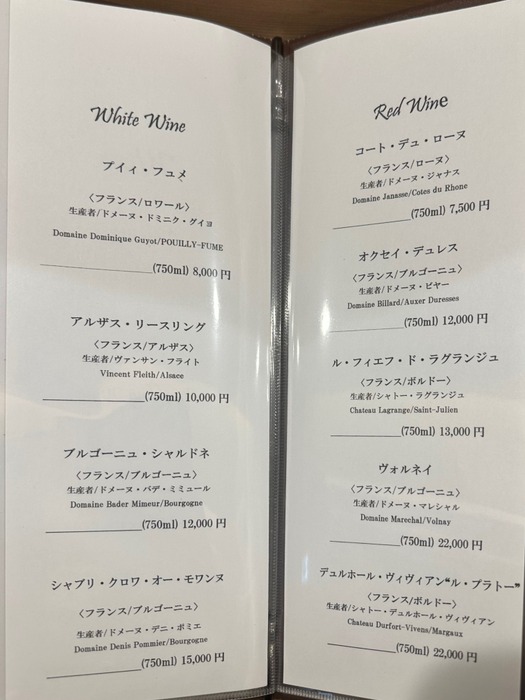 White Wine
プイィ・フュメ
〈フランス/ロワール〉
生産者/ドメーヌ・ドミニク・グイヨ
Domaine Dominique Guyot/POUILLY-FUME
(750ml) 8,000 円
アルザス・リースリング
〈フランス/アルザス〉
生産者/ヴァンサン・フライト
Vincent Fleith/Alsace
(750ml) 10,000 円
ブルゴーニュ・シャルドネ
〈フランス/ブルゴーニュ〉
生産者/ドメーヌ・バデ・ミミュール
Domaine Bader Mimeur/Bourgogne
(750ml) 12,000 円
シャブリ・クロワ・オー・モワンヌ
〈フランス/ブルゴーニュ〉
生産者/ドメーヌ・デニ・ポミエ
Domaine Denis Pommier/Bourgogne
(750ml) 15,000 円
Red Wine
コート・デュ・ローヌ
〈フランス/ローヌ〉
生産者/ドメーヌ・ジャナス
Domaine Janasse/Cotes du Rhone
(750ml) 7,500 円
オクセイ・デュレス
〈フランス/ブルゴーニュ〉
生産者/ドメーヌ・ビヤー
Domaine Billard/Auxer Duresses
(750ml) 12,000 円
ル・フィエフ・ド・ラグランジュ
〈フランス/ボルドー〉
生産者/シャトー・ラグランジュ
Chateau Lagrange/Saint-Julien
(750ml) 13,000 円
ヴォルネイ
〈フランス/ブルゴーニュ〉
生産者/ドメーヌ・マレシャル
Domaine Marechal/Volnay
(750ml) 22,000 円
デュルホール・ヴィヴィアン“ル・プラトー”
〈フランス/ボルドー〉
生産者/シャトー・デュルホール・ヴィヴィアン
Chateau Durfort-Vivens/Margaux
(750ml) 22,000 円